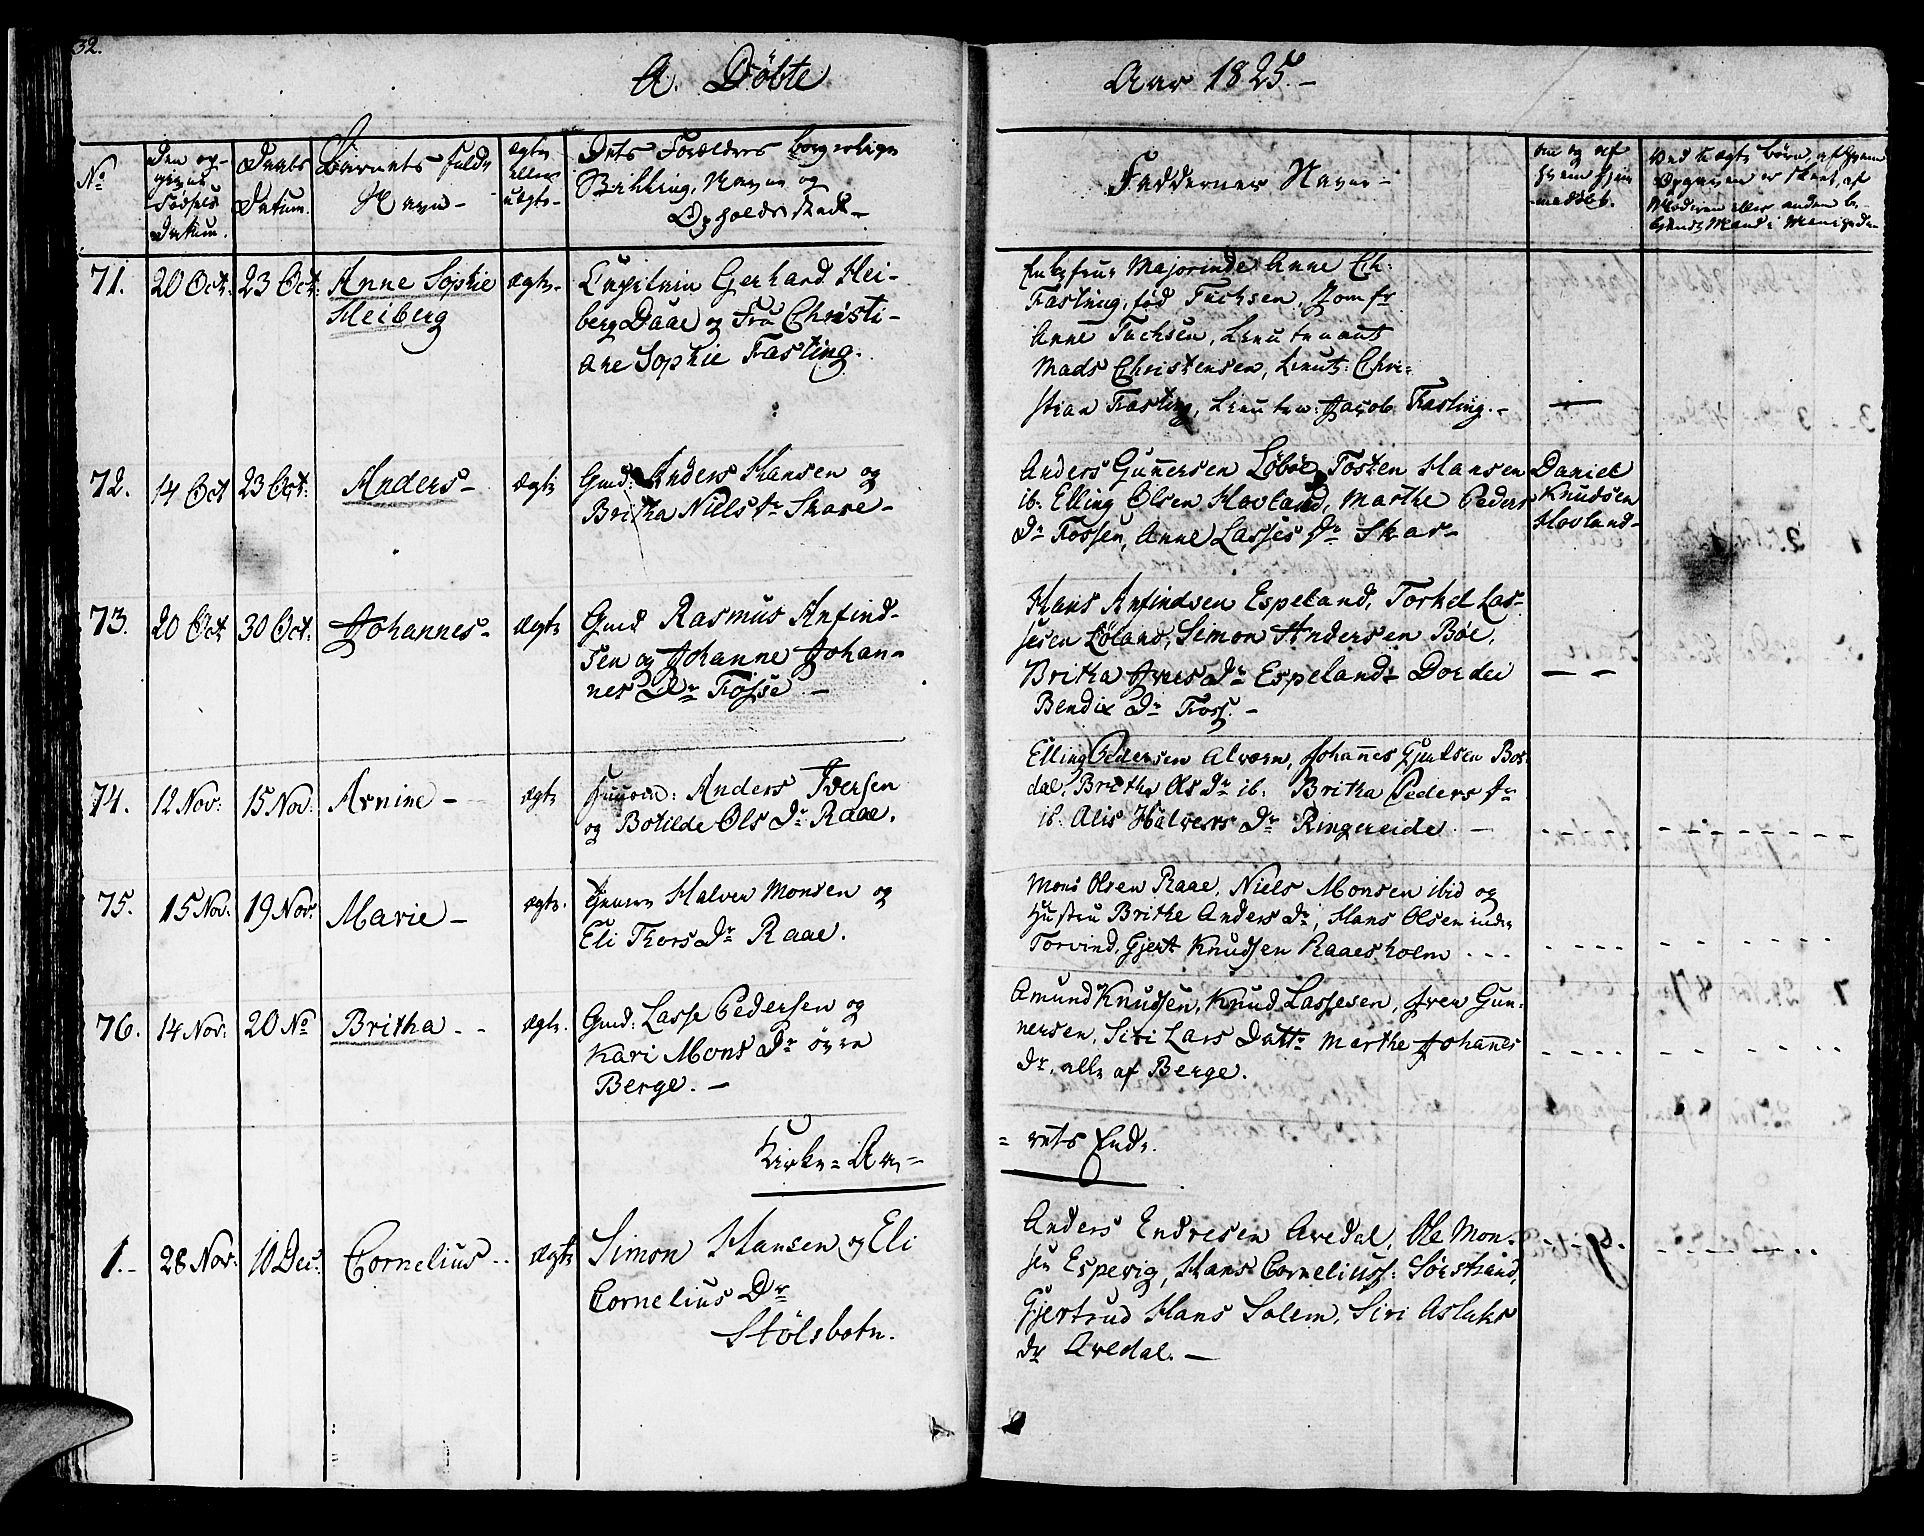 32.
A. Döbte
Aar 1825.-
No
Den op-
givne
Fødsels
Datum.
Daabs
Datum.
Barnets fulde
Navn -
ægte
eller
uægte-
Dets Forældres borgerlige
Stilling, Navne og
Opholds Sted -
Faddernes Navne -
om og af
hvem hjem
medöbt.
Ved uægte børn, af hvem
Opgaven er skeet, af
Moderen eller anden be-
kjendt Mand i Menigheden
71. 20 Oct: 23 Oct: Anne Sophie ægte- Capitain Gerhard Hei-
Heiberg berg Daae og Fru Christi-
ane Sophie Fasting.
Enkefrue Majorinde Anne Ch:
Fasting, fød Fuchsen, Jomfr
Anne Fuchsen, Lieutenant
Mads Christensen, Lieut: Chri-
stian Fasting, Lieuten: Jacob Fasting. - —
72. 14 Oct 23 Oct: Anders - ægte Gmd: Anders Hansen og
Britha Niels Dr Skare -
Anders Gunnersen Løböe, Tosten Hansen
ib. Elling Olsen Hovland, Marthe Peders
Dr Fossen, Anne Lasses Dr Skar -
Daniel
Knudsen
Hovland -
73. 20 Oct 30 Oct: Johannes - ægte Gmd Rasmus Anfind-
sen og Johanne Johan-
nes Dr Fosse -
Hans Anfindsen Espeland, Torkel Las-
sesen Løland, Simon Andersen Böe,
Britha Ivers Dr Espeland Dordei
Bendix Dr Foss. - — —
74. 12 Nov: 15 Nov: Arnine - ægte Huusm: Anders Iversen
og Botilde Ols Dr Raae.
Elling Pedersen Alværn, Johannes Gjertsen Bor-
dal, Brithe Ols Dr ib. Britha Peders Dr
ib. Alis Halvers Dr Ringereide. -
75. 15 Nov. 19 Nov: Marie - ægte. Halver Monsen og
Eli Thors Dr Raae.
Mons Olsen Raae, Niels Monsen ibid og
Hustru Brithe Anders Dr, Hans Olsen indre
Torvind, Gjert Knudsen Raaesholm ...
76. 14 Nov: 20 No Britha - - ægte. Gmd: Lasse Pedersen og
Kari Mons Dr øvre
Berge. -
Amund Knudsen, Knud Lassesen, Iver Gun-
nersen, Siri Lars Dattr Marthe Johannes
Dr, alle af Berge.
Kirke-Aa-
= rets Ende.
1.- 28 Nov. 10 Dec: Cornelius - ægte Simon Hansen og Eli
Cornelius Dr
Stölsbotn.
Anders Endresen Aredal, Ole Mon-
sen Espevig, Hans Corneliuss: Sørstrand,
Gjertrud Hans Solem, Siri Aslaks
dr Aredal. -